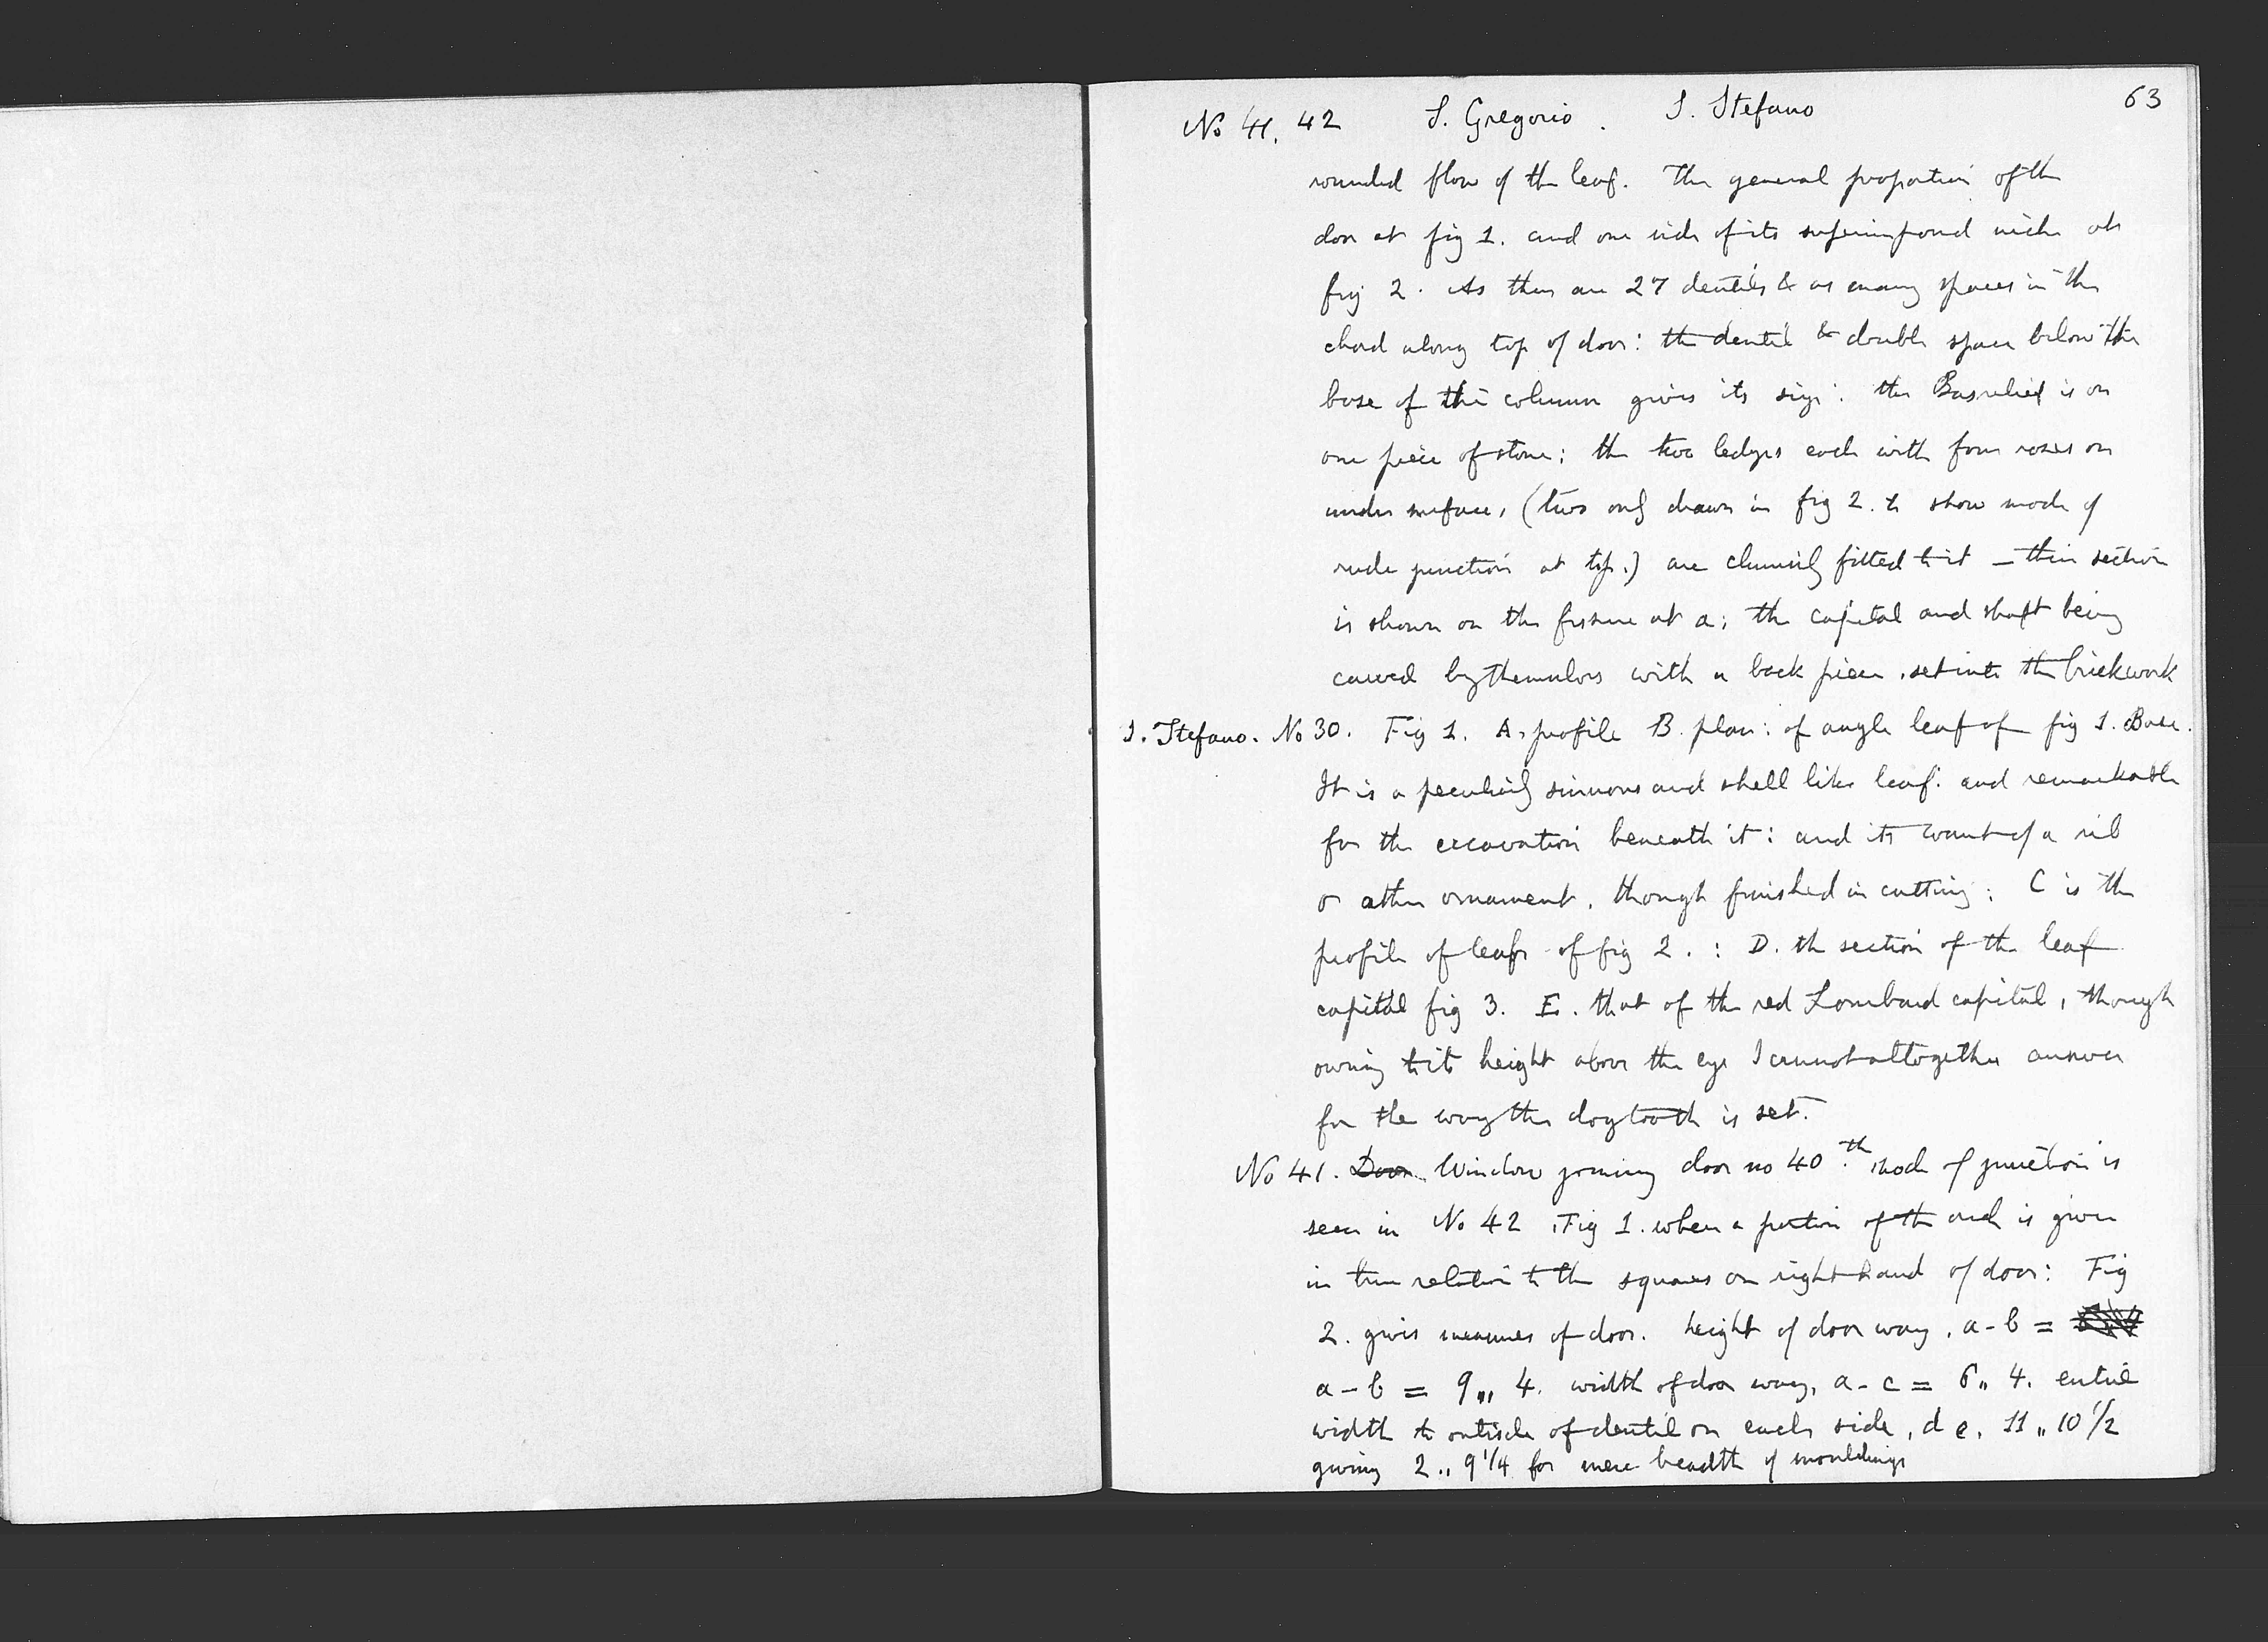 63
No 41. 42 S. Gregorio. S. Stefano
rounded flow of the leaf. The general proportion of the
door at fig 1. and one side of its superimposed niche at
fig 2. As there are 27 dentils & as many spaces in the
chord along top of door: the dentil & double space below the
base of the column gives its size: the Basrelief is on
one piece of stone: the two ledges each with four roses on
under surface, (two only drawn in fig 2. to show mode of
rude junction at top.) are clumsily fitted to it — their section
is shown on the fissure at a; the capital and shaft being
carved by themselves with a back piece, set into the brickwork
S. Stefano. No 30. Fig 1. A, profile B. plan: of angle leaf of fig 1. Base.
It is a peculiarly sinuous and shell like leaf: and remarkable
for the excavation beneath it: and its want of a rib
or other ornament, though finished in cutting: C is the
profile of leafs of fig 2. : D. the section of the leaf
capital fig 3. E. that of the red Lombard capital, though
owing to its height above the eye I cannot altogether answer
for the way the dogtooth is set.
No 41. Door Window joining door no 40. the mode of junction is
seen in No 42, Fig 1. when a portion of the arch is given
in true relation to the squares on right hand of door: Fig
2. gives measures of door. height of door way, a-b =
a-b = 9,,, 4. width of door way, a-c = 6,, 4. entire
width to outside of dentil on each side, d e, 11,, 10 1/2
giving 2,, 9 1/4 for mere breadth of mouldings